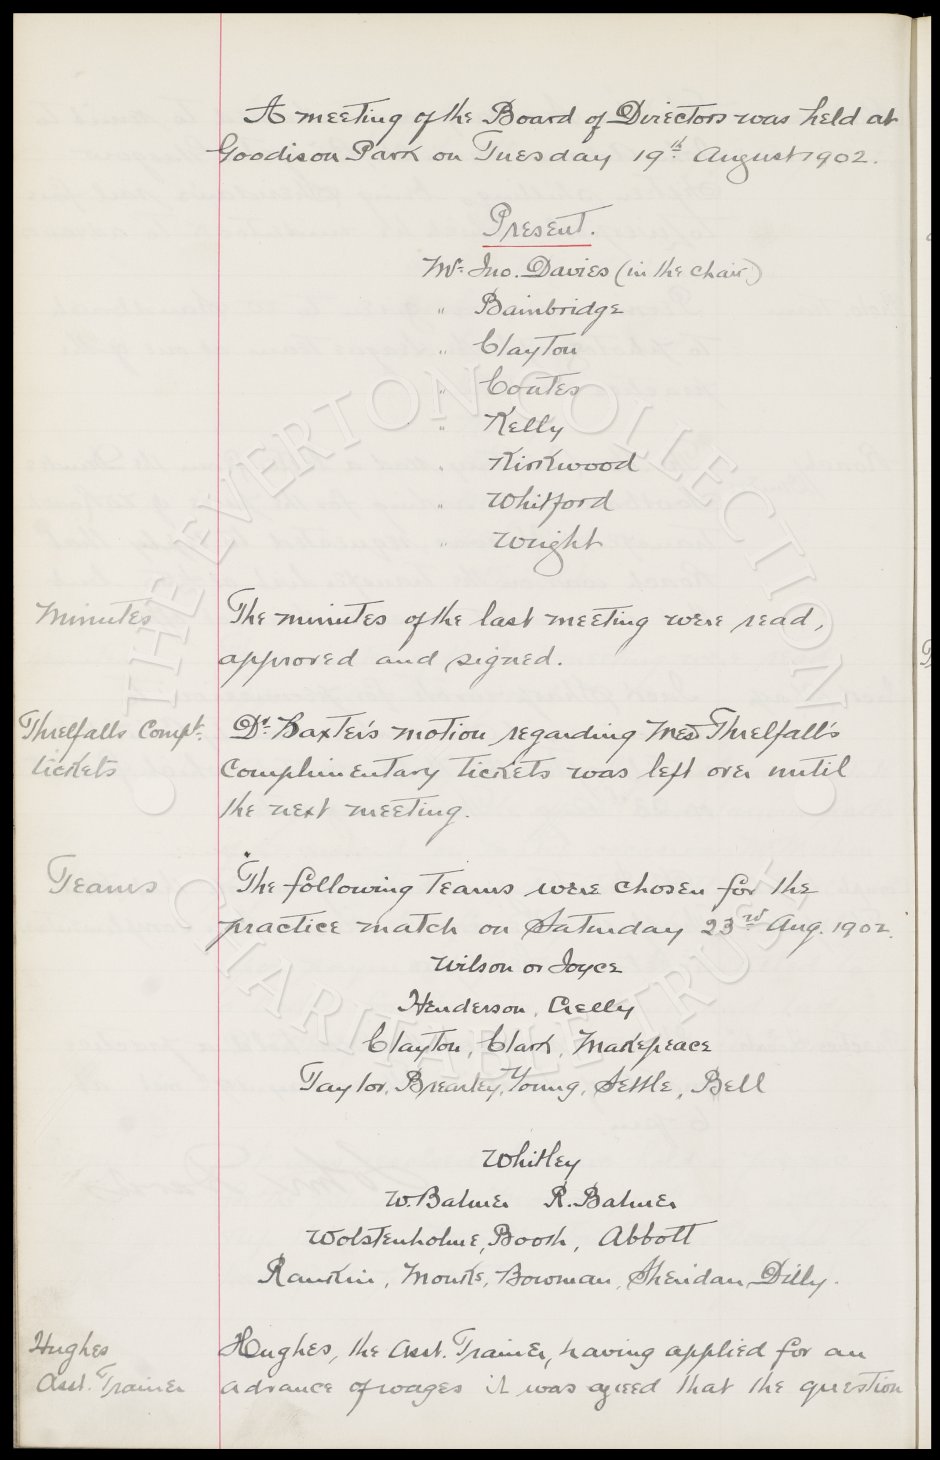 A meeting of the Board of Directors was held at
Goodison Park on Tuesday 19th August 1902.
Present.
Mr. Jno. Davies (in the chair)
" Bainbridge
" Clayton
" Coates
" Kelly
" Kirkwood
" Whitford
" Wright
Minutes
The minutes of the last meeting were read,
approved and signed.
Threlfalls Compt.
tickets
Dr. Baxter's motion regarding Mess Threlfall's
Complimentary tickets was left over until
the next meeting.
Teams
The following Teams were chosen for the
practice match on Saturday 23rd Aug. 1902.
Wilson or Joyce
Henderson, Crelly
Clayton, Clark, Makepeace
Taylor, Brearley, Young, Settle, Bell
Whitley
W. Balmer R. Balmer
Wolstenholme, Booth, Abbott
Rankin, Monks, Bowman, Sheridan, Dilly.
Hughes
Asst. Trainer
Hughes, the Asst. Trainer, having applied for an
advance of wages it was agreed that the question
THE EVERTON COLLECTION
CHARITABLE TRUST